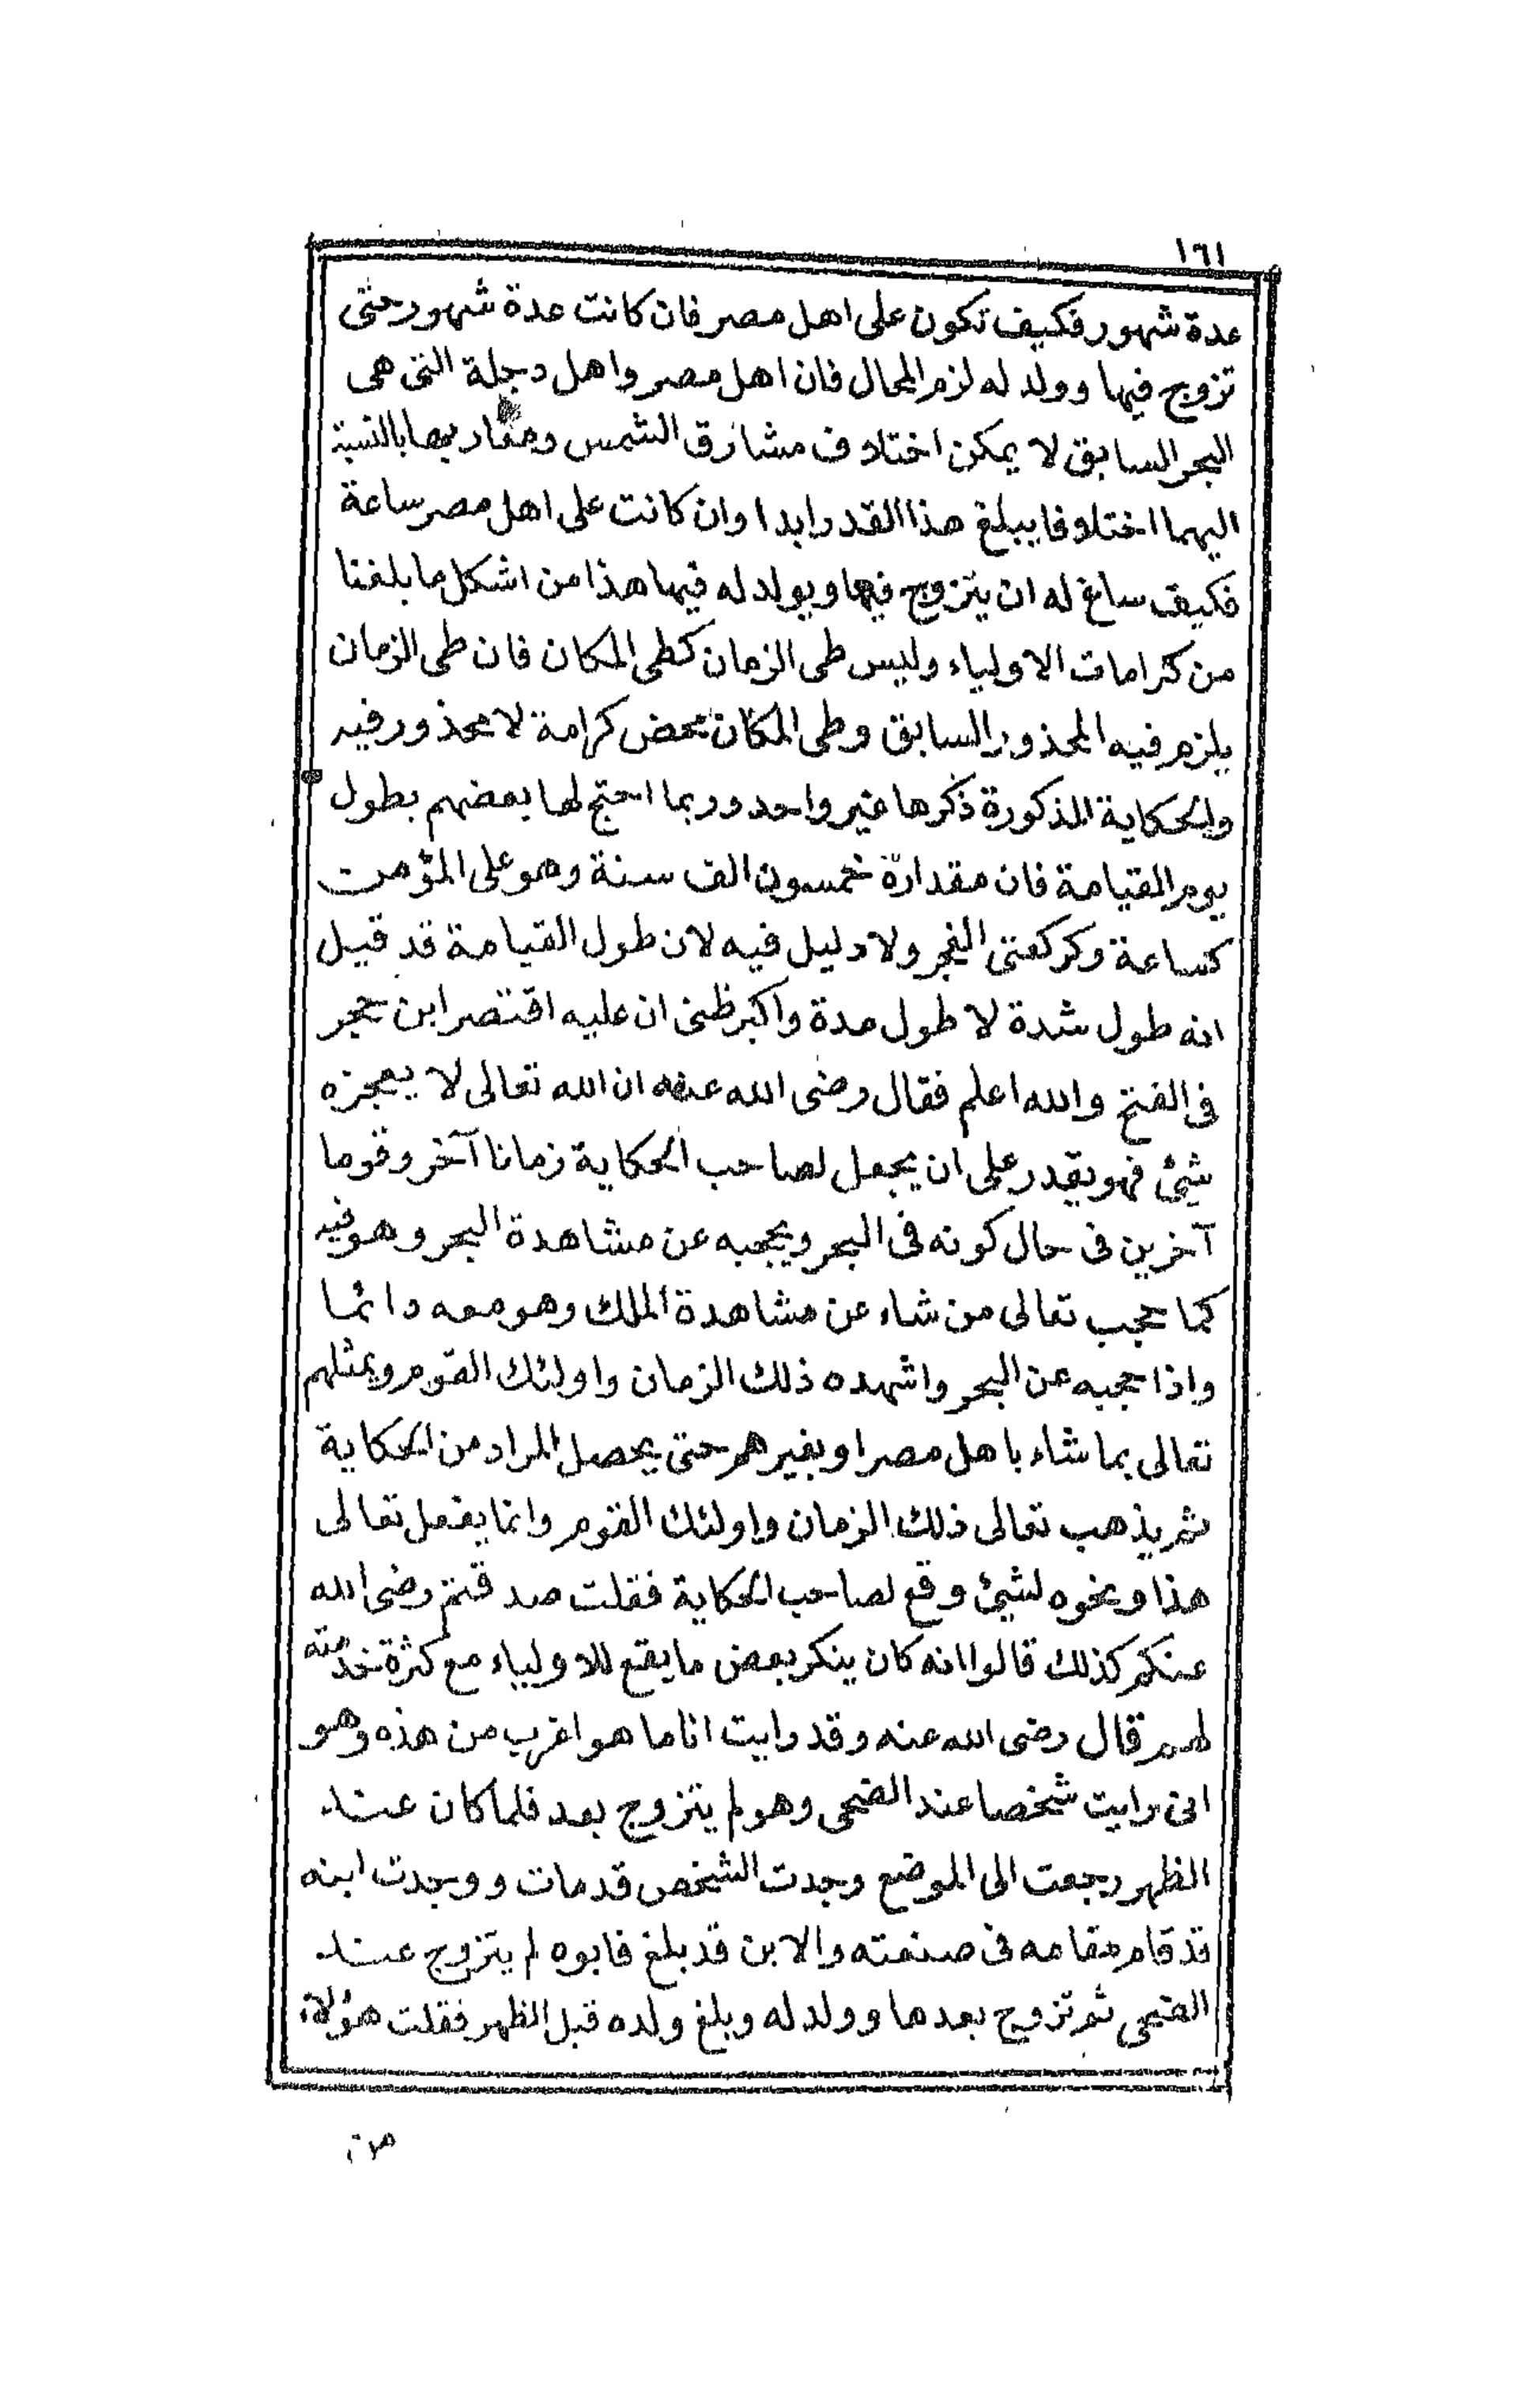 ١٦١
عدة شهور فكيف تكون على اهل مصر فان كانت عدة شهور حتى
تزوج فيها وولد له لزم المحال فان اهل مصر واهل دجلة التى هى
البحر السابق لا يمكن اختلاف مشارق الشمس ومغاربها بالنسبة
اليهما اختلافا يبلغ هذا القدر ابدا وان كانت على اهل مصر ساعة
فكيف ساغ له ان يتزوج فيها ويولد له فيها هذا من اشكل ما بلغنا
من كرامات الاولياء وليس طى الزمان كطى المكان فان طى الزمان
يلزم فيه المحذور السابق وطى المكان محض كرامة لا محذور فيه
والحكاية المذكورة ذكرها غير واحد وربما احتج لها بعضهم بطول
يوم القيامة فان مقداره خمسون الف سنة وهو على المؤمن
كساعة وكركعتى الفجر ولا دليل فيه لان طول القيامة قد قيل
انه طول شدة لا طول مدة واكبر ظنى ان عليه اقتصر ابن حجر
فى الفتح والله اعلم فقال رضى الله عنه ان الله تعالى لا يعجزه
شيئ فهو يقدر على ان يجعل لصاحب الحكاية زمانا آخر وقوما
آخرين فى حال كونه فى البحر ويحجبه عن مشاهدة البحر وهو فيه
كما حجب تعالى من شاء عن مشاهدة الملك وهو معه دائما
واذا حجبه عن البحر واشهده ذلك الزمان واولئك القوم ويمثلهم
تعالى بما شاء باهل مصر او بغيرهم حتى يحصل المراد من الحكاية
ثم يذهب تعالى ذلك الزمان واولئك القوم وانما يفعل تعالى
هذا ونحوه لشيئ وقع لصاحب الحكاية فقلت صدقتم رضى الله
عنكم كذلك قالوا انه كان ينكر بعض ما يقع للاولياء مع كثرة خدمته
لهم قال رضى الله عنه وقد رايت انا ما هو اغرب من هذه وهو
انى رايت شخصا عند الضحى وهو لم يتزوج بعد فلما كان عند
الظهر رجعت الى الموضع وجدت الشخص قد مات ووجدت ابنه
قد قام مقامه فى صنعته والابن قد بلغ فابوه لم يتزوج عند
الضحى ثم تزوج بعدها وولد له وبلغ ولده قبل الظهر فقلت هؤلاء
من